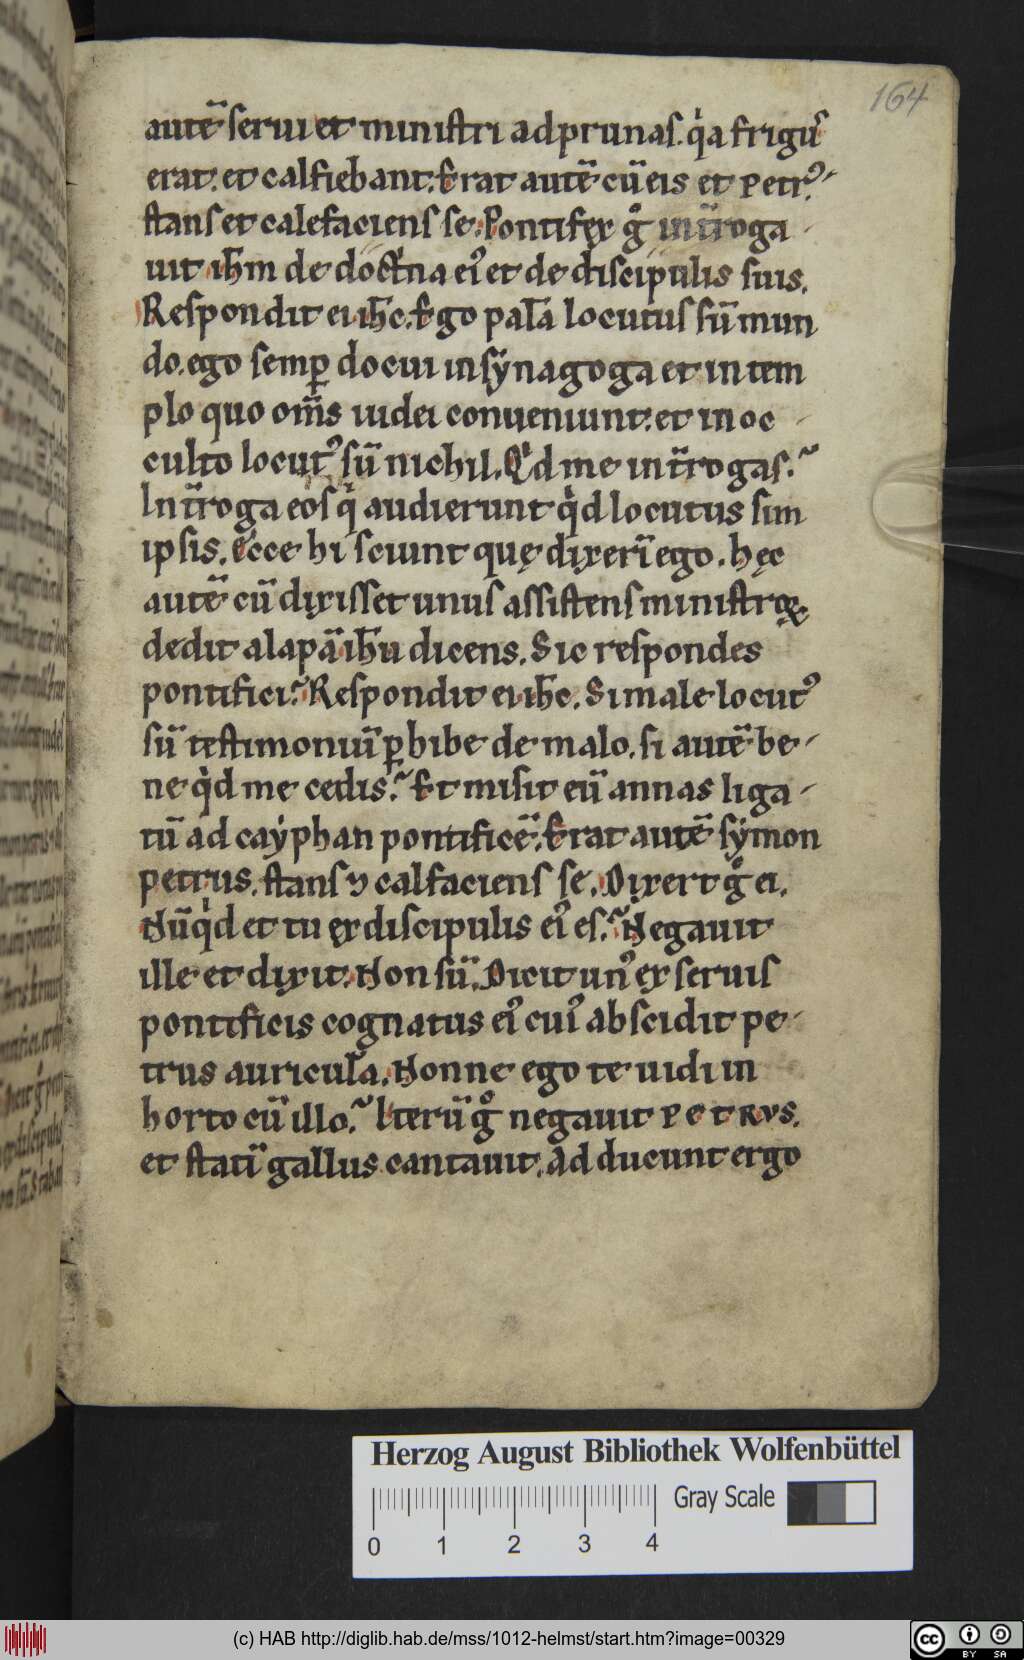 164
autē serui et ministri ad prunas. qͥa frigꝰ
erat. et calfiebant. Erat autē cū eis et Petrꝰ
stans et calefaciens se. Pontifex gͦ int̄roga
uit ih̄m de doctͥna eiꝰ et de discipulis suis.
Respondit ei ih̄c. Ego palā locutus sū mun
do. ego semꝑ docui in sẏnagoga et in tem
plo quo om̄s iudei conueniunt. et in oc
culto locutꝰ sū nichil. Qͥd me int̄rogas.
Int̄roga eos qͥ audierunt qͥd locutus sim
ipsis. ecce hi sciunt quę dixerī ego. hęc
autē cū dixisset unus assistens ministroꝝ
dedit alapā ih̄u dicens. Sic respondes
pontifici. Respondit ei ih̄c. Si male locutꝰ
sū testimoniū ꝑhibe de malo. si autē be
ne qͥd me cedis. Et misit eū annas liga
tū ad caẏphan pontificē. Erat autē sẏmon
petrus. stans ⁊ calfaciens se. Dixert gͦ ei.
Nūqͥd et tu ex discipulis eiꝰ es. Negauit
ille et dixit. Non sū. Dicit unꝰ ex seruis
pontificis cognatus eiꝰ cuiꝰ abscidit pe
trus auriculā. Nonne ego te uidi in
horto cū illo. Iterū gͦ negauit PETRVS.
et statī gallus cantauit. ad ducunt ergo
Herzog August Bibliothek Wolfenbüttel
Gray Scale
0 1 2 3 4
(c) HAB http://diglib.hab.de/mss/1012-helmst/start.htm?image=00329
cc BY SA